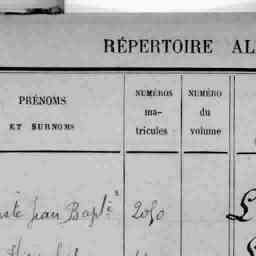 RÉPERTOIRE AL
PRÉNOMS
ET SURNOMS
NUMÉROS
ma-
tricules
NUMÉRO
du
volume
Jean Bapte 2050